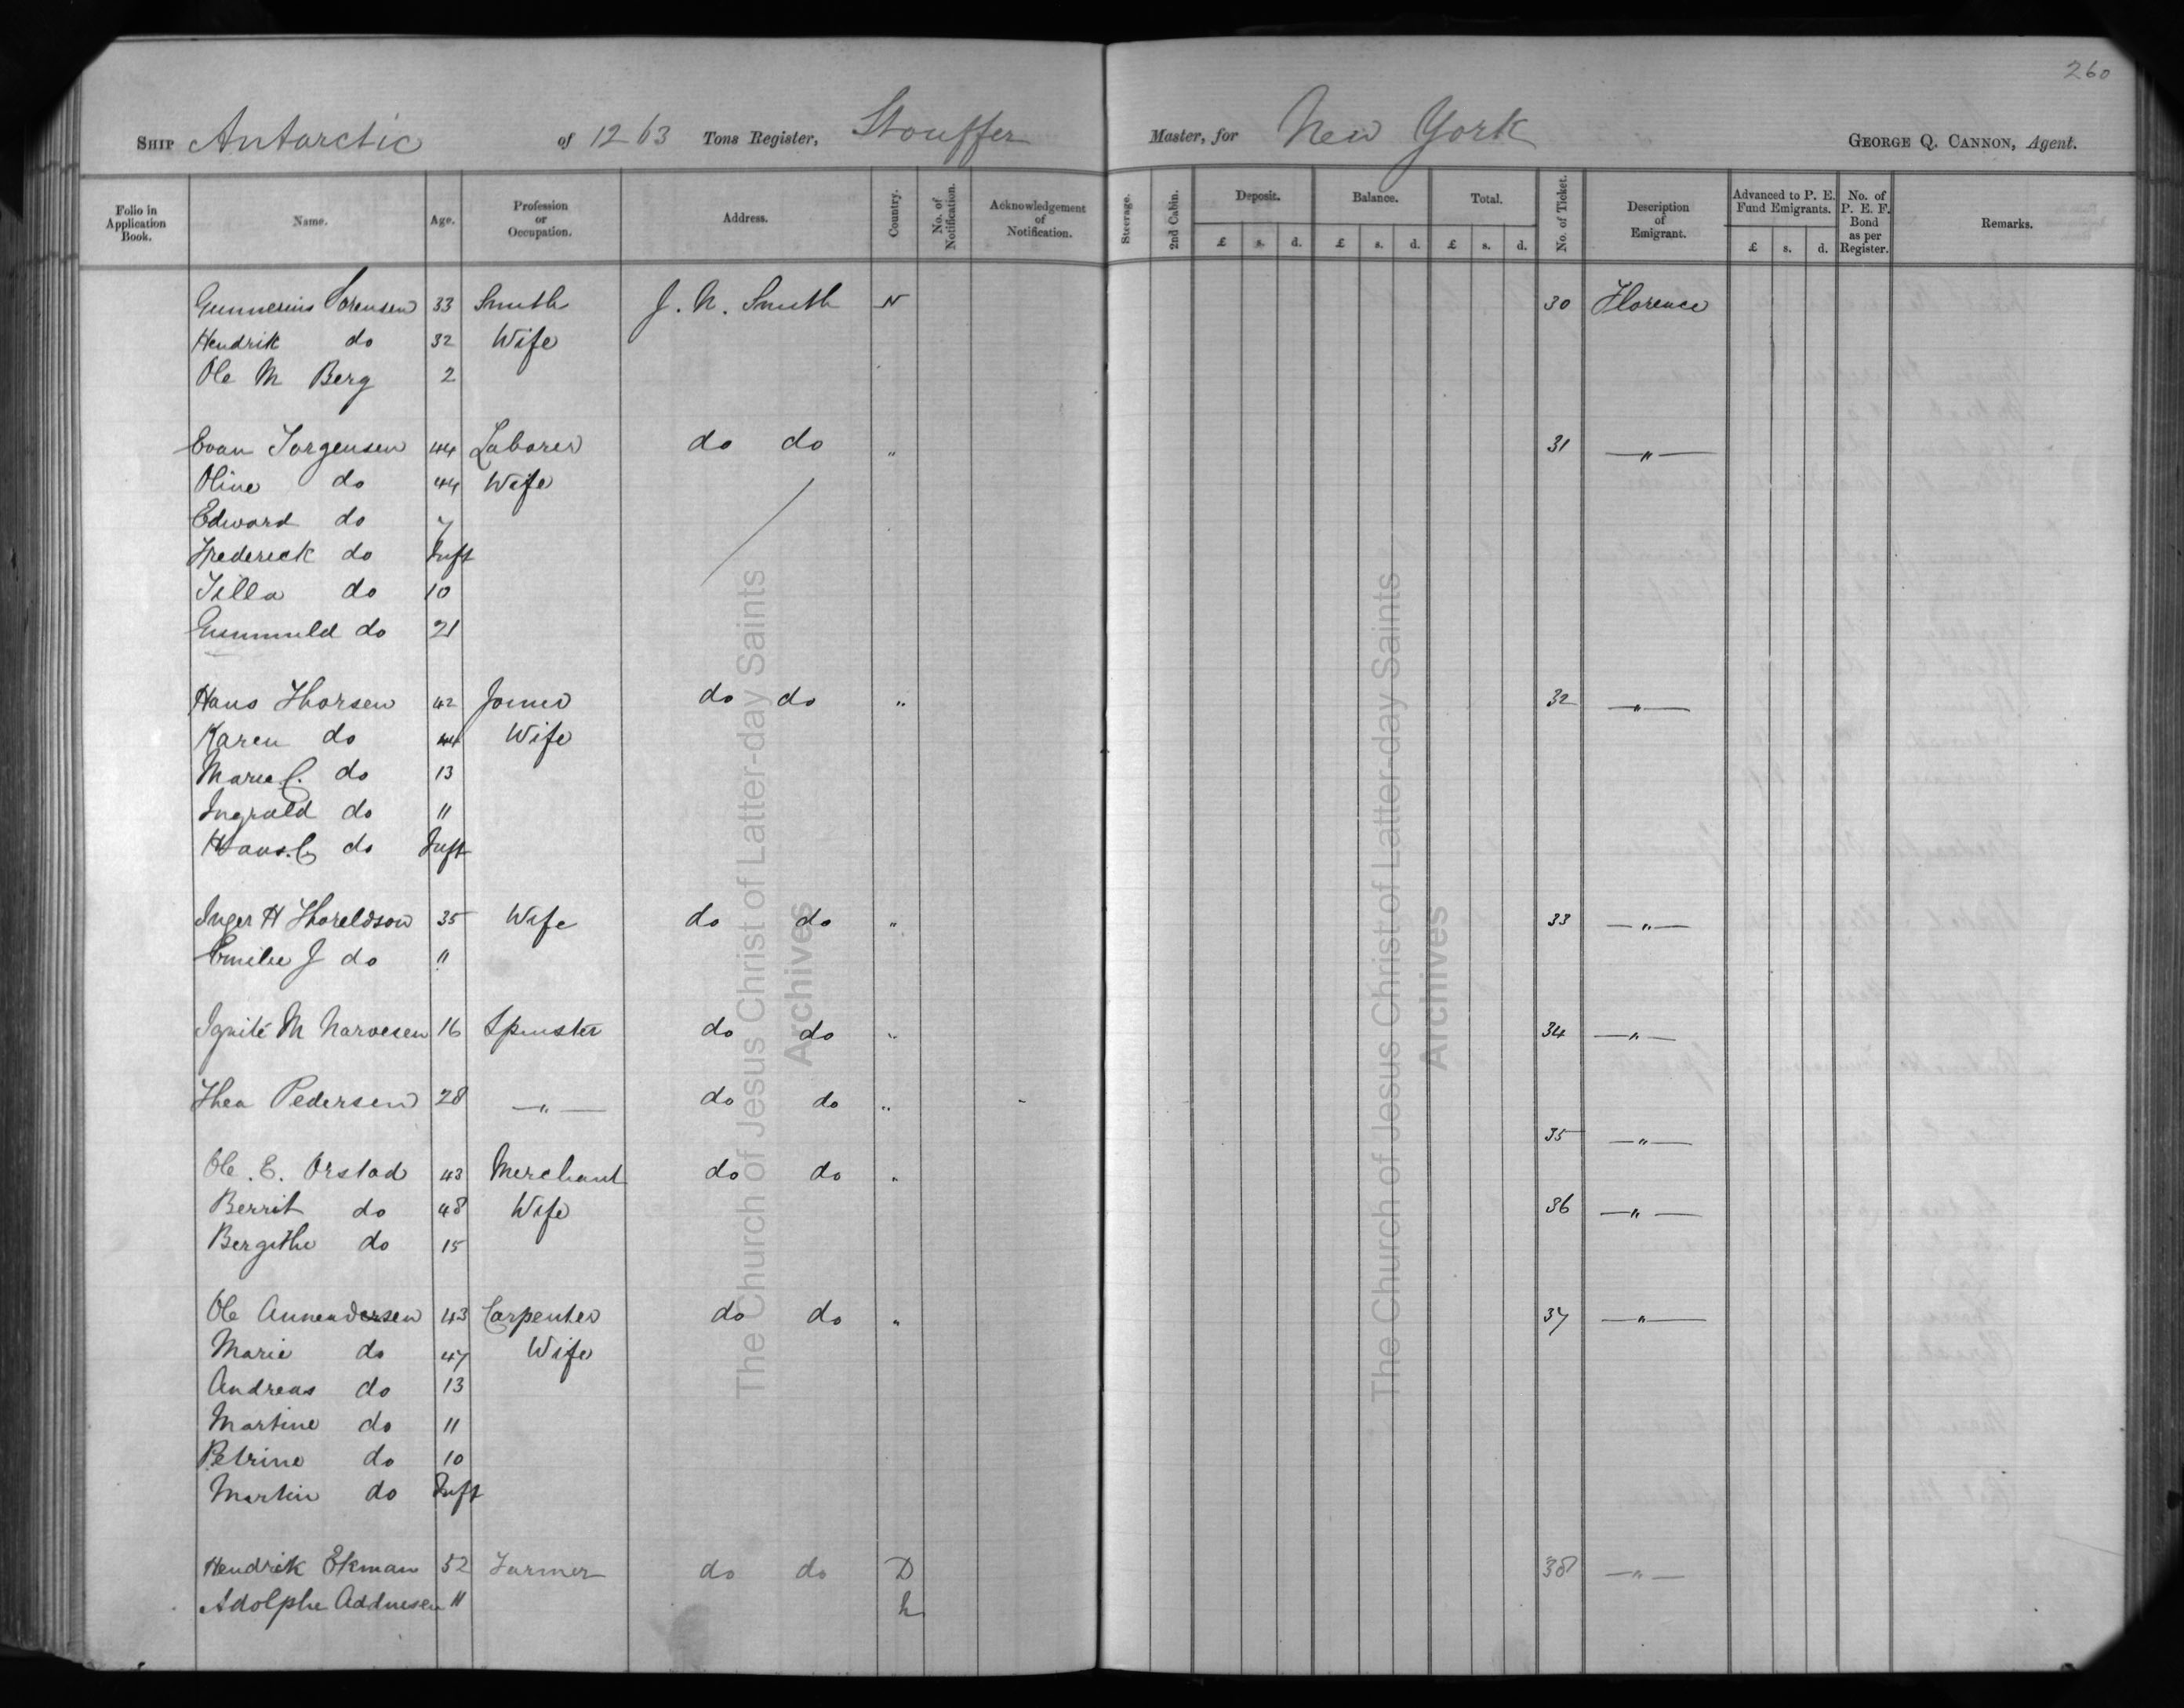 260
SHIP Antarctic of 1263 Tons Register, Stouffer Master, for New York GEORGE Q. CANNON, Agent.
Folio in Application Book. Name. Age. Profession or Occupation. Address. Country. No. of Notification. Acknowledgement of Notification. Steerage. 2nd Cabin. Deposit. Balance. Total. No. of Ticket. Description of Emigrant. Advanced to P. E. Fund Emigrants. No. of P. E. F. Bond as per Register. Remarks.
£ s. d. £ s. d. £ s. d. £ s. d.
Gunnerius Sorensen 33 Smith J. N. Smith N 30 Florence
Hendrik do 32 Wife
Ole M Berg 2
Evan Jorgensen 44 Laborer do do " 31 — " —
Oline do 44 Wife
Edward do 7
Frederick do Inft
Tilla do 10
Gunnuld do 21
Hans Thorsen 42 Joiner do do " 32 — " —
Karen do 44 Wife
Marie C. do 13
Ingvald do 11
Hans. C do Inft
Inger H Thoreldson 35 Wife do do " 33 — " —
Emilie J do 11
M Narvesen 16 Spinster do do " 34 — " —
Thea Pedersen 28 — " — do do "
35 — " —
Ole. E. Orstad 43 Merchant do do "
Berrit do 48 Wife 36 — " —
Bergithe do 15
Ole Annendersen 43 Carpenter do do " 37 — " —
Marie do 47 Wife
Andreas do 13
Martine do 11
Petrine do 10
Martin do Inft
Hendrik Ekman 52 Farmer do do D 38 — " —
Adolphe 11
The Church of Jesus Christ of Latter-day Saints
Archives
The Church of Jesus Christ of Latter-day Saints
Archives